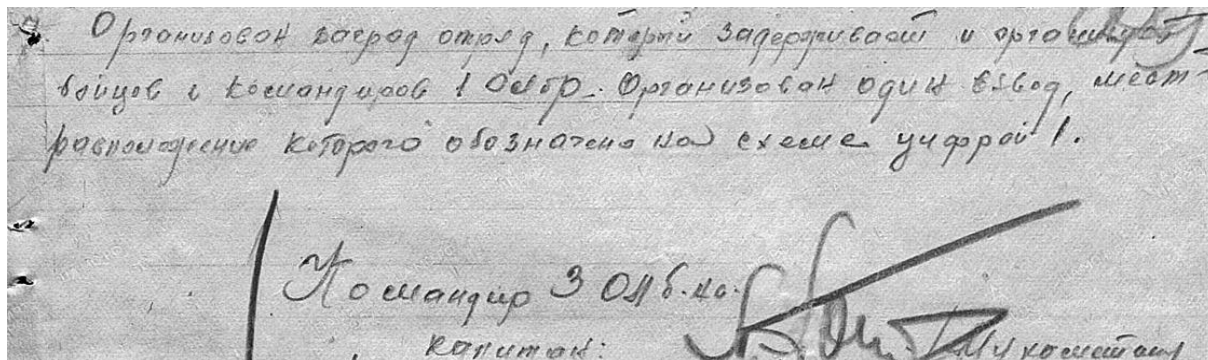 Организован заград отряд, который задерживает и организует
бойцов и командиров 1 Олбр. Организован один взвод, мест-
расположение которого обозначено на схеме цифрой 1.
Командир 3 ОЛб-на.
капитан: